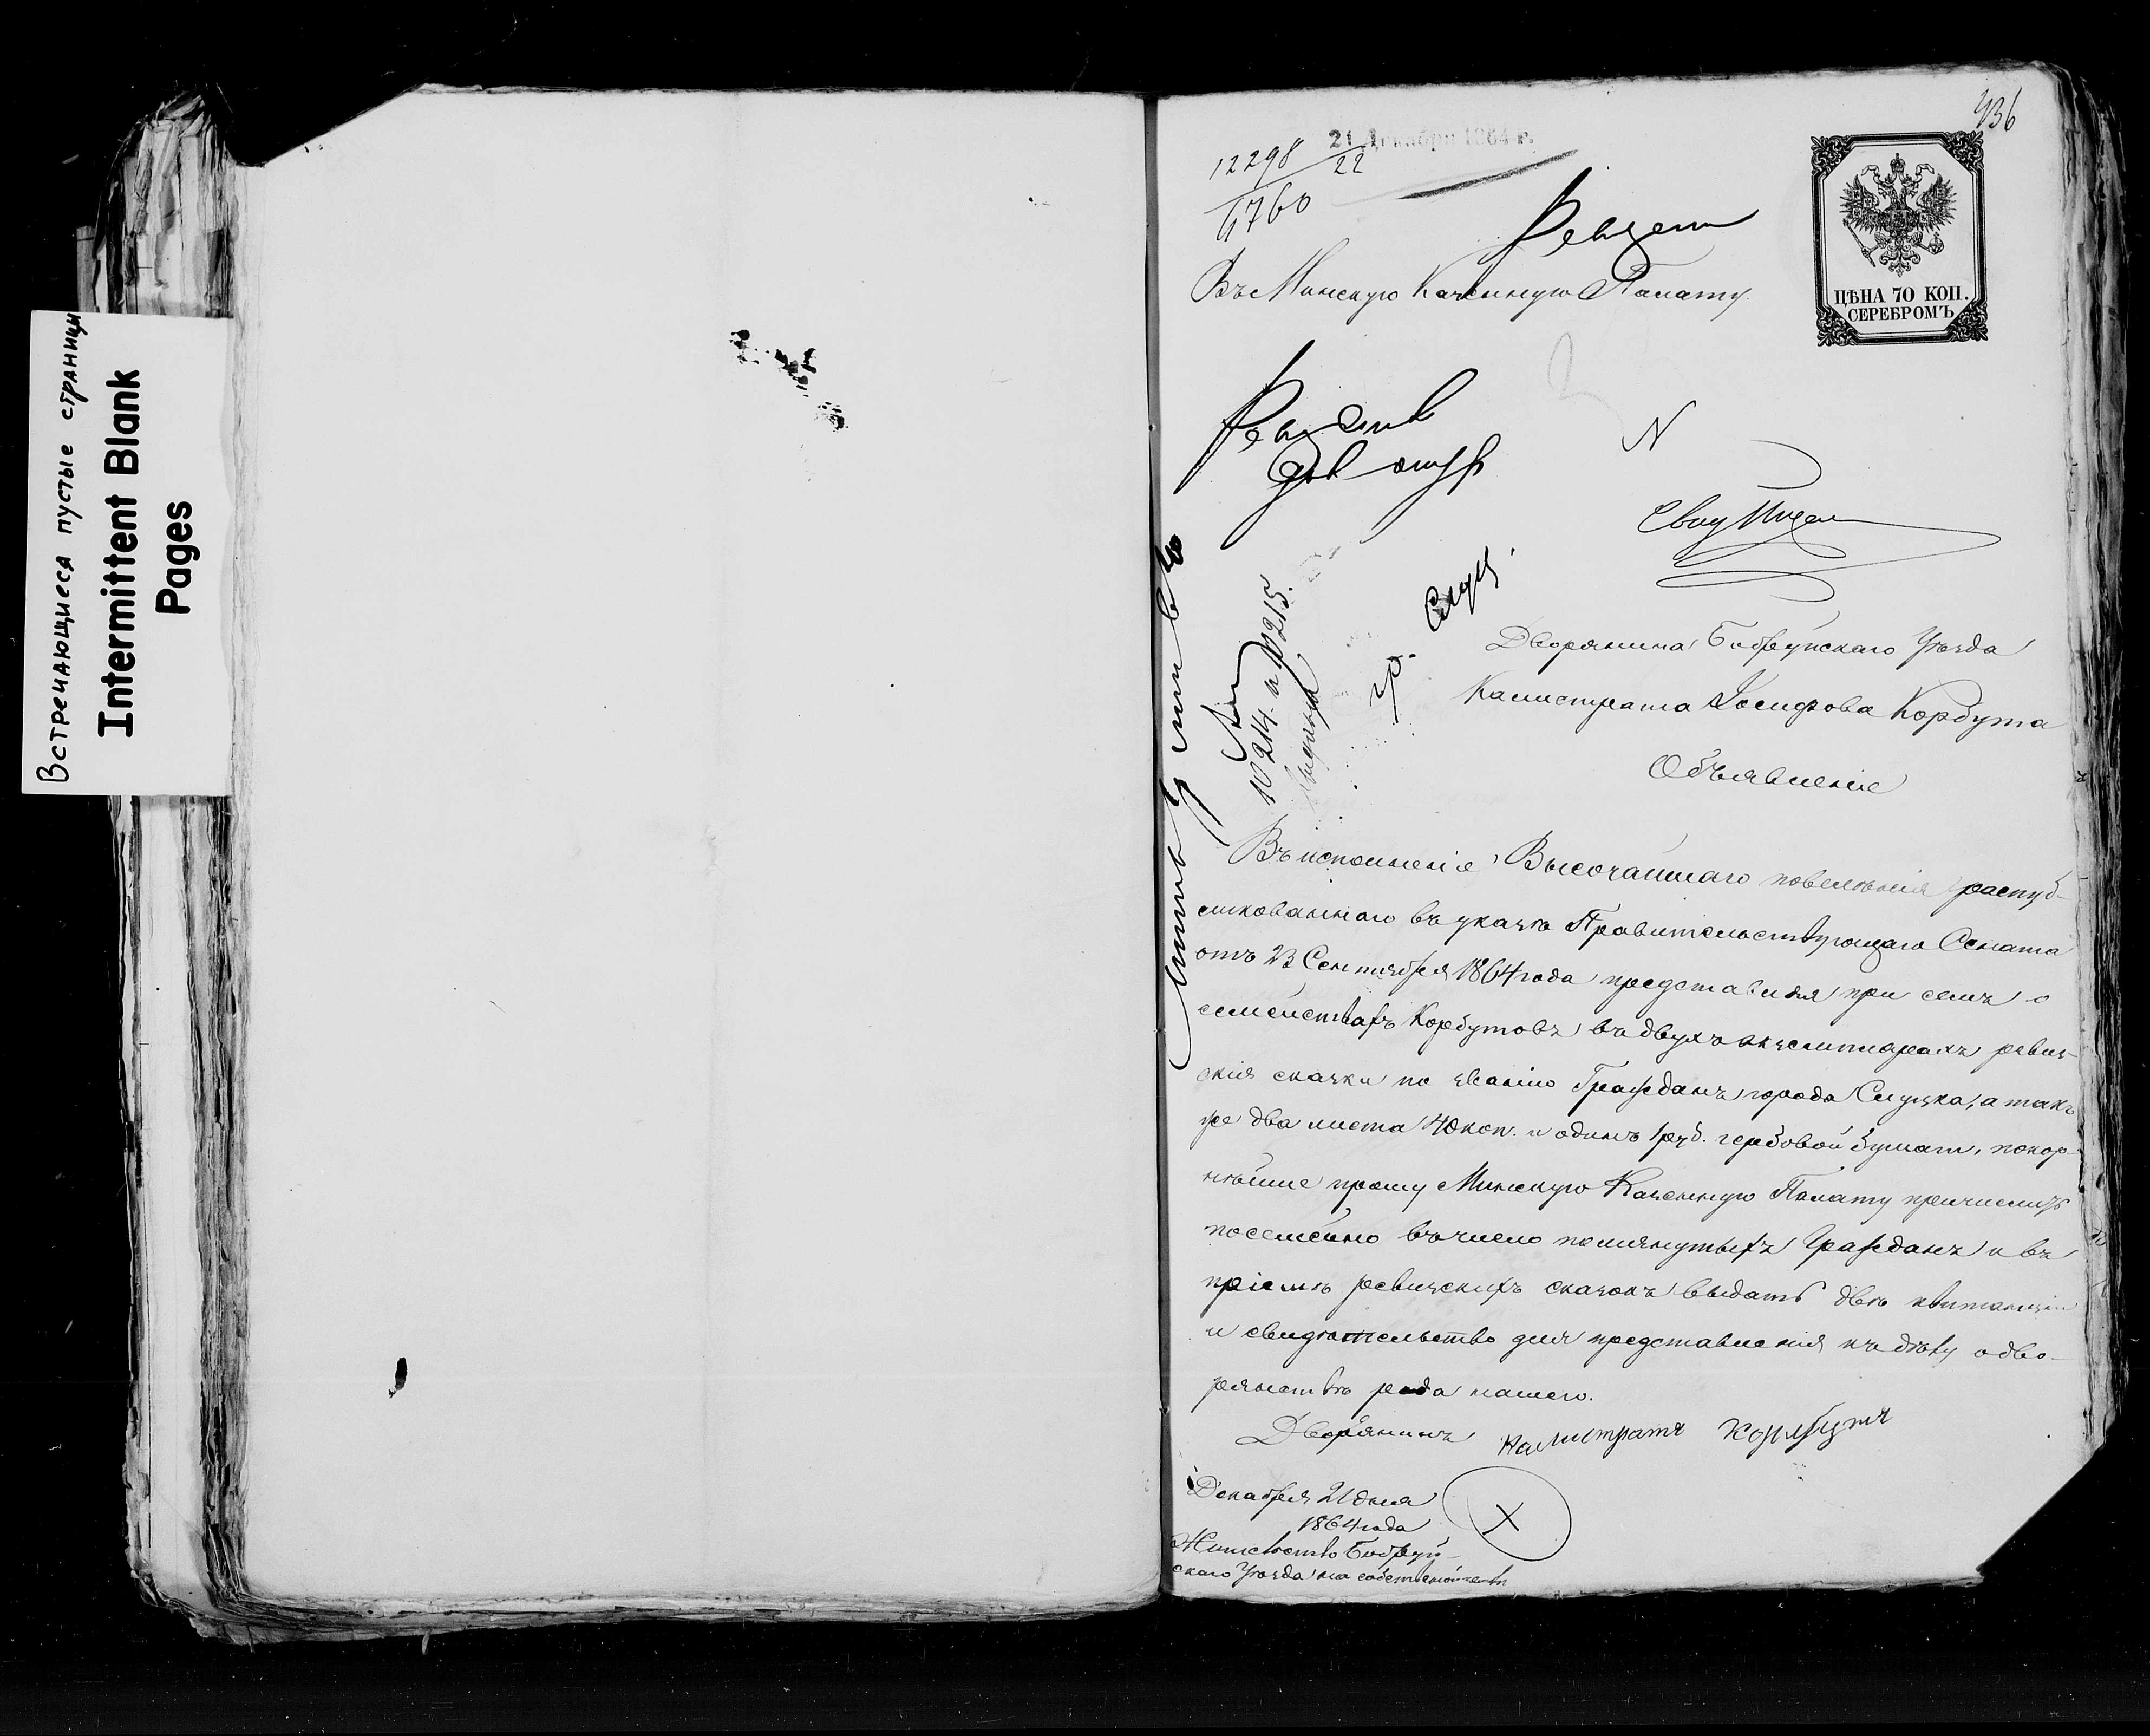 Встречающиеся пустые страницы
Intermittent Blank
Pages
436
21 Декабря 1864 г.
12298
22
6760
ЦѢНА 70 КОП.
СЕРЕБРОМЪ
Въ Минскую Казенную Палату
N
Дворянина Бобруйскаго Уѣзда
Калистрата Іосифова Корбута
Объявленіе
10214 и 10215.
Въ исполненіе Высочайшаго повелѣнія распуб-
ликованнаго въ указѣ Правительствующаго Сената
отъ 23 Сентября 1864 года представляя при семъ о
семействахъ Корбутовъ въ двухъ экземплярахъ ревиз-
скія сказки по званію Гражданъ города Слуцка, а такъ
же два листа 40 коп. и одинъ 1 руб. гербовой бумаги, покор-
нѣйше прошу Минскую Казенную Палату причислить
посемейно въ число помянутыхъ Гражданъ и въ
пріемѣ ревизскихъ сказокъ выдать двѣ квитанціи
и свидѣтельство для представленія къ дѣлу о дво-
рянствѣ рода нашего.
Дворянинъ Калистратъ Корбутъ
Декабря 21 дня
1864 года
Х
Жительство Бобруй-
скаго Уѣзда на собственной землѣ